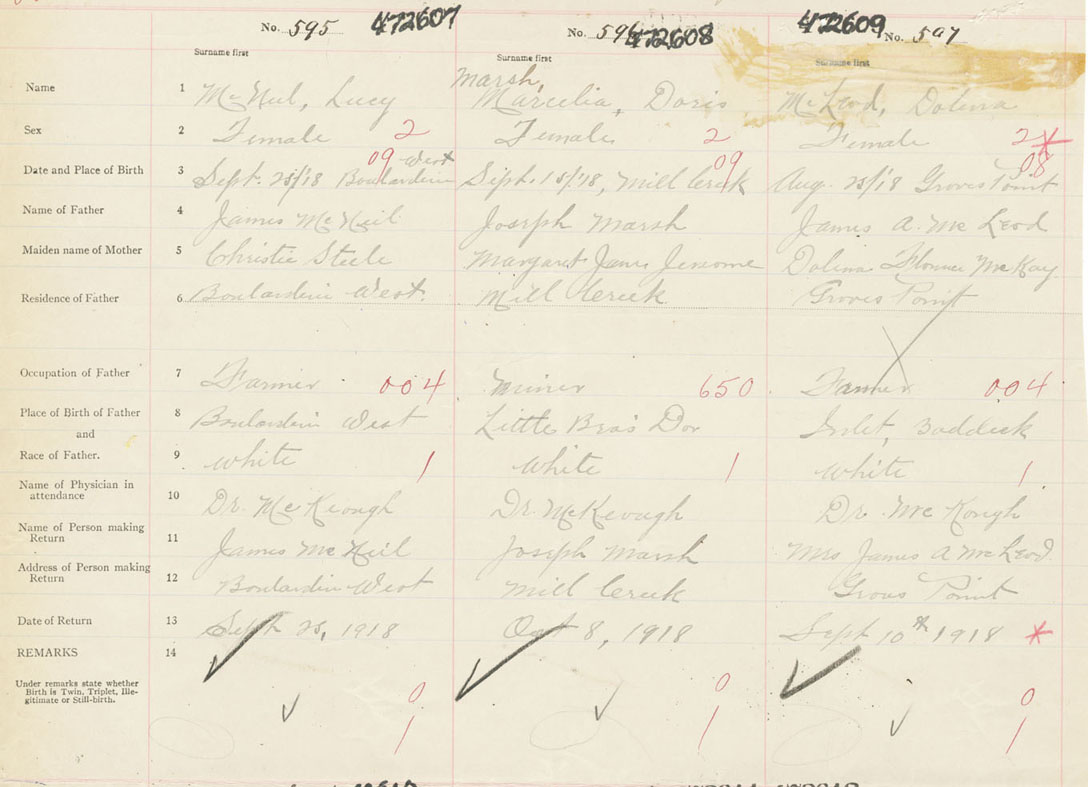 No. 595 472607 No. 596 472608 472609 No. 597
Surname first Surname first Surname first
Marsh,
Name 1 McNeil, Lucy Marcelia, Doris McLeod, Dolena
Sex 2 Female 2 Female 2 Female 2 X
09 West 09 08
Date and Place of Birth 3 Sept. 25/18 Boulardrie Sept. 15/18, Mill Creek Aug. 25/18 Groves Point
Name of Father 4 James McNeil Joseph Marsh James A. McLeod
Maiden name of Mother 5 Christie Steele Margaret Jane Dolina McKay
Residence of Father 6 Boulardrie West. Mill Creek Groves Point
Occupation of Father 7 Farmer 004 Miner 650 Farmer 004
Place of Birth of Father 8 Boulardrie West Little Bras Dor Inlet, Baddeck
and
Race of Father. 9 White 1 White 1 White 1
Name of Physician in
attendance 10 Dr. McKeough Dr. McKeough Dr. McKough
Name of Person making
Return 11 James McNeil Joseph Marsh Mrs James A McLeod
Address of Person making
Return 12 Boulardrie West Mill Creek Groves Point
Date of Return 13 Sept 25, 1918 Oct 8, 1918 Sept 10th 1918
REMARKS 14
Under remarks state whether
Birth is Twin, Triplet, Ille-
gitimate or Still-birth.
0 0 0
1 1 1